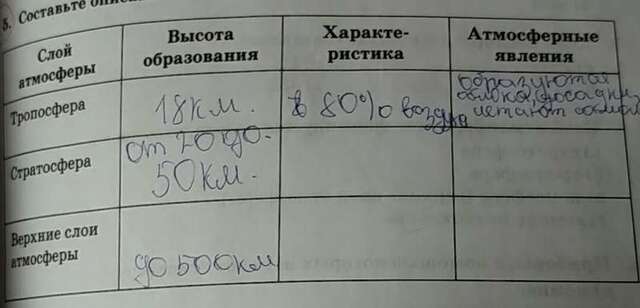 5. Составьте
Слой
атмосферы
Высота
образования
Характе-
ристика
Атмосферные
явления
Тропосфера
18км.
в 80% воздуха
образуются
облака, осадки,
Стратосфера
от 20 до
50км.
Верхние слои
атмосферы
до 500км